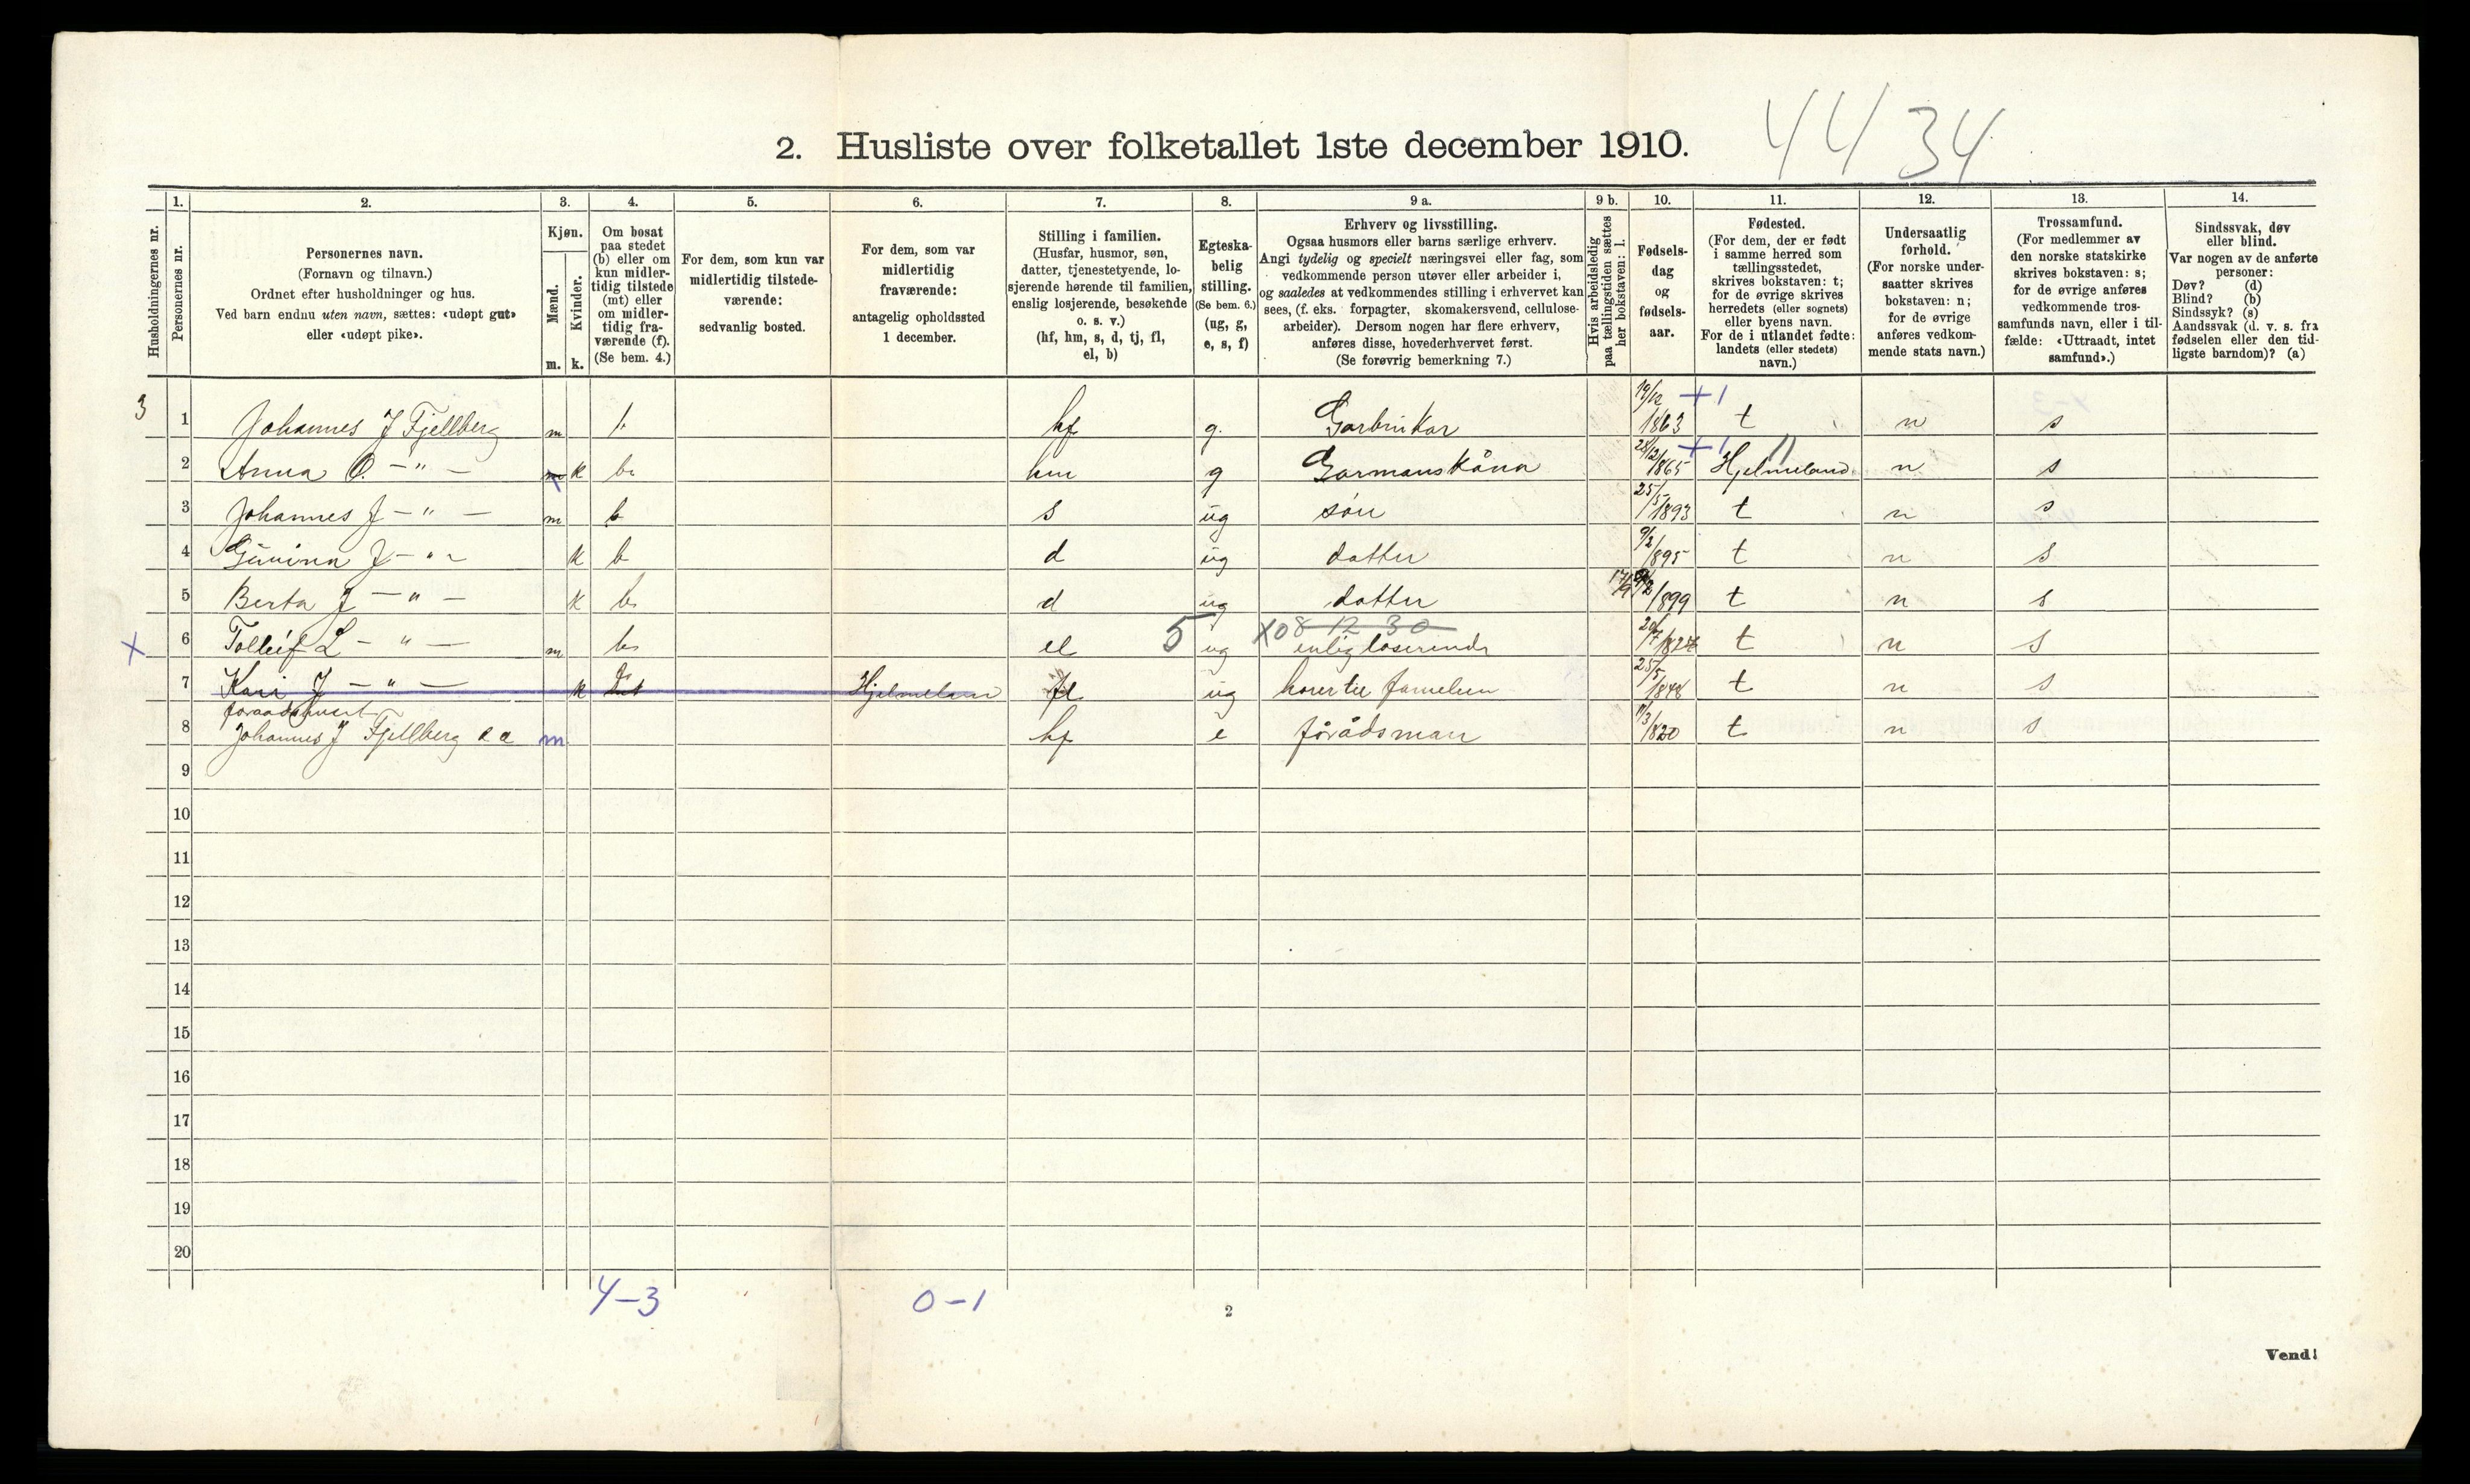 2. Husliste over folketallet 1ste december 1910.
44 34
Husholdningernes nr.
1. Personernes nr.
2.
Personernes navn.
(Fornavn og tilnavn.)
Ordnet efter husholdninger og hus.
Ved barn endnu uten navn, sættes: «udøpt gut»
eller «udøpt pike».
3.
Kjøn.
Mænd.
Kvinder.
m. k.
4.
Om bosat
paa stedet
(b) eller om
kun midler-
tidig tilstede
(mt) eller
om midler-
tidig fra-
værende (f).
(Se bem. 4.)
5.
For dem, som kun var
midlertidig tilstede-
værende:
sedvanlig bosted.
6.
For dem, som var
midlertidig
fraværende:
antagelig opholdssted
1 december.
7.
Stilling i familien.
(Husfar, husmor, søn,
datter, tjenestetyende, lo-
sjerende hørende til familien,
enslig losjerende, besøkende
o. s. v.)
(hf, hm, s, d, tj, fl,
el, b)
8.
Egteska-
belig
stilling.
(Se bem. 6.)
(ug, g,
e, s, f)
9 a.
Erhverv og livsstilling.
Ogsaa husmors eller barns særlige erhverv.
Angi tydelig og specielt næringsvei eller fag, som
vedkommende person utøver eller arbeider i,
og saaledes at vedkommendes stilling i erhvervet kan
sees, (f. eks. forpagter, skomakersvend, cellulose-
arbeider). Dersom nogen har flere erhverv,
anføres disse, hovederhvervet først.
(Se forøvrig bemerkning 7.)
9 b.
Hvis arbeidsledig
paa tællingstiden sættes
her bokstaven: l.
10.
Fødsels-
dag
og
fødsels-
aar.
11.
Fødested.
(For dem, der er født
i samme herred som
tællingsstedet,
skrives bokstaven: t;
for de øvrige skrives
herredets (eller sognets)
eller byens navn.
For de i utlandet fødte:
landets (eller stedets)
navn.)
12.
Undersaatlig
forhold.
(For norske under-
saatter skrives
bokstaven: n;
for de øvrige
anføres vedkom-
mende stats navn.)
13.
Trossamfund.
(For medlemmer av
den norske statskirke
skrives bokstaven: s;
for de øvrige anføres
vedkommende tros-
samfunds navn, eller i til-
fælde: «Uttraadt, intet
samfund».)
14.
Sindssvak, døv
eller blind.
Var nogen av de anførte
personer:
Døv? (d)
Blind? (b)
Sindssyk? (s)
Aandssvak (d. v. s. fra
fødselen eller den tid-
ligste barndom)? (a)
3 1 Johannes J Fjellberg m b hf g. 19/12 1863 +1 t n s
2 Anna O. — " — k b hm g Garmanskåna 28/12 1865 +1 Hjelmeland n s
3 Johannes J — " — m b s ug søn 25/5 1893 t n s
4 J — " — k b d ug datter 9/2 1895 t n s
5 Berta J — " — k b d ug datter 17/9 1899 t n s
5 X 08 12 30
X 6 Tolleif L — " — m b el ug enlig loserende t n s
7 Kari J — " — k Hjelmeland fl ug hører til 25/5 1848 t n s
8 Johannes J Fjellberg m hf e førådsman 1820 t n s
9
10
11
12
13
14
15
16
17
18
19
20
4-3
0-1
2
Vend!